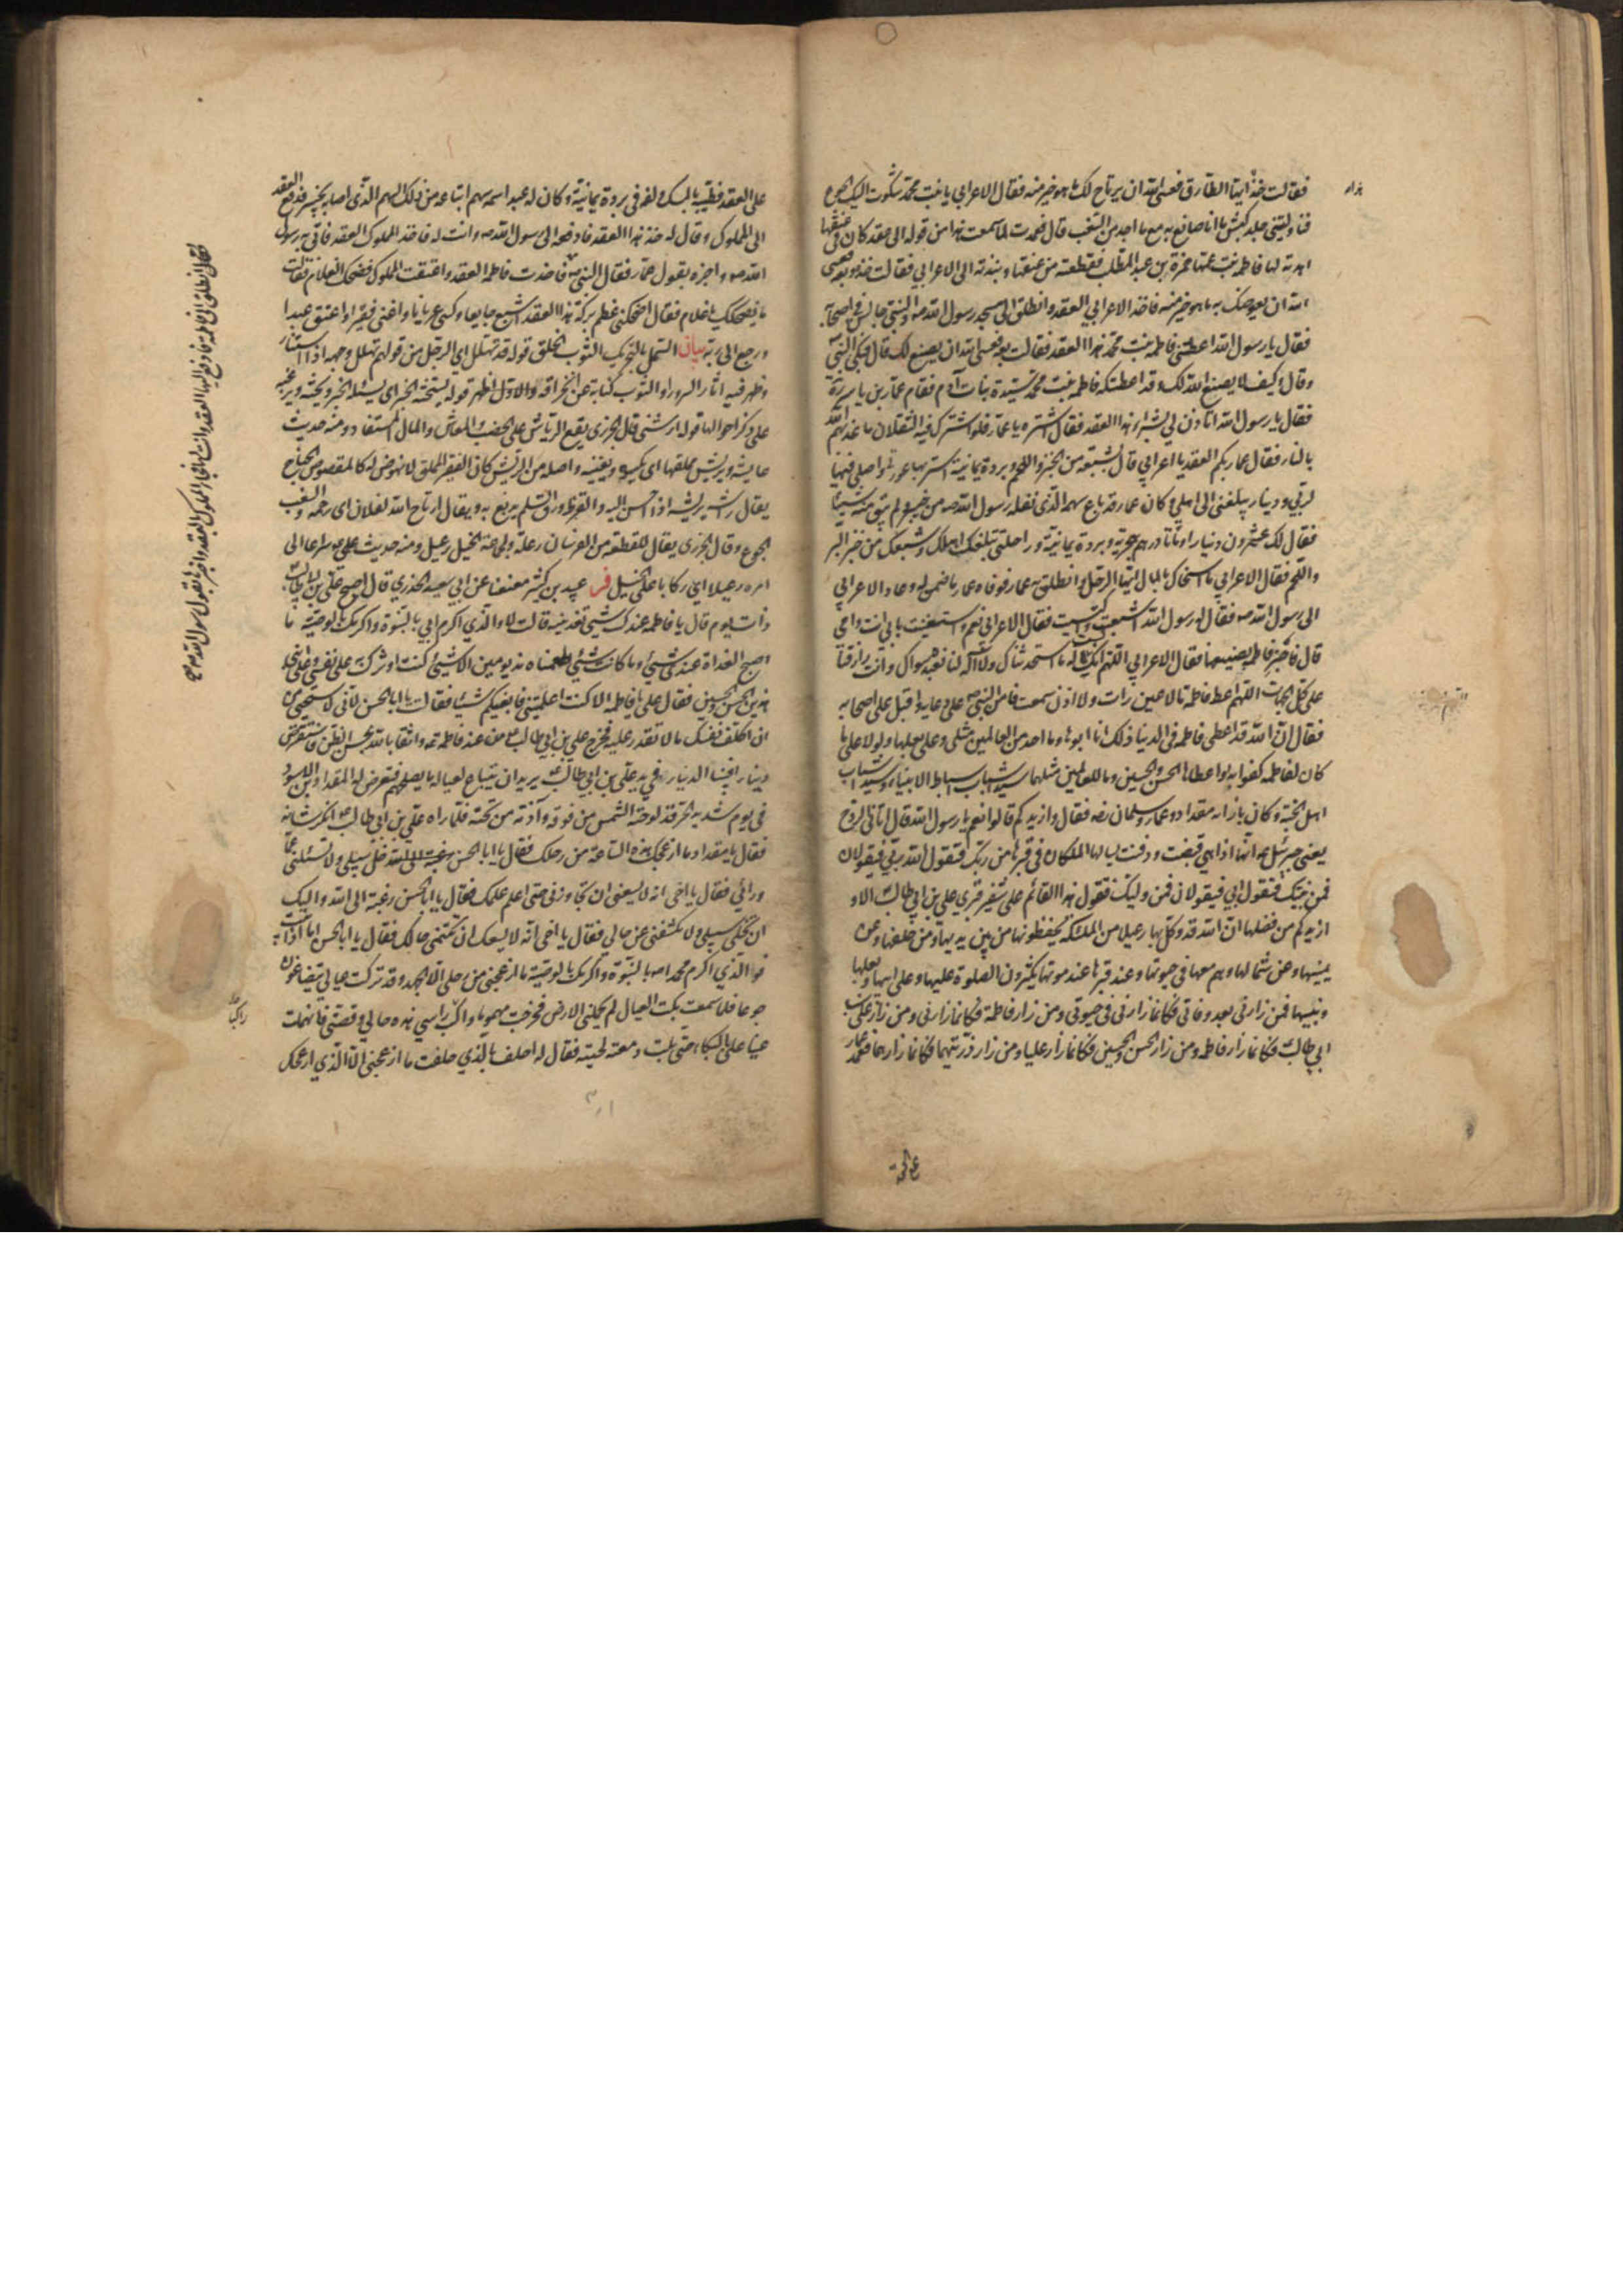 فقالت خذ ايها الطارق فعسى الله ان يرتاح لك ما هو خير منه فقال الاعرابي يا بنت محمد شكوت اليك الجوع
فناولتني جلد كبش ما انا صانع به مع ما اجد من السغب قال فعمدت لما سمعت هذا من قوله الى عقد كان في عنقها
اهدته لها فاطمة بنت عمها حمزة بن عبد المطلب فقطعته من عنقها ونبذته الى الاعرابي فقالت خذه وبعه فعسى
الله ان يعوضك به ما هو خير منه فاخذ الاعرابي العقد وانطلق الى مسجد رسول الله ص والنبي جالس في اصحابه
فقال يا رسول الله اعطتني فاطمة بنت محمد هذا العقد فقالت بعه فعسى الله ان يصنع لك قال فبكى النبي
وقال وكيف لا يصنع الله لك وقد اعطتكه فاطمة بنت محمد سيدة بنات آدم فقام عمار بن ياسر رة
فقال يا رسول الله اتاذن لي بشراء هذا العقد فقال اشتره يا عمار فلو اشترك فيه الثقلان ما عذبهم الله
بالنار فقال عمار بكم العقد يا اعرابي قال بشبعة من الخبز واللحم وبردة يمانية استر بها عورتي واصلي فيها
لربي ودينار يبلغني الى اهلي وكان عمار قد باع سهمه الذي نفله رسول الله ص من خيبر ولم يبق منه شيئا
فقال لك عشرون دينارا ومأتا درهم هجرية وبردة يمانية وراحلتي تبلغك اهلك وشبعك من خبز البر
واللحم فقال الاعرابي ما اسخاك بالمال ايها الرجل وانطلق به عمار فوفاه عمار ما ضمن له وعاد الاعرابي
الى رسول الله ص فقال له رسول الله اشبعت واكتسيت فقال الاعرابي نعم واستغنيت بابي انت وامي
قال فاجز فاطمة بصنيعها فقال الاعرابي اللهم انك اله ما استحدثناك ولا اله لنا نعبده سواك وانت رازقنا
على كل الجهات اللهم اعط فاطمة ما لا عين رات ولا اذن سمعت فامن النبي ص على دعائه واقبل على اصحابه
فقال ان الله قد اعطى فاطمة في الدنيا ذلك انا ابوها وما احد من العالمين مثلي وعلي بعلها ولولا علي ما
كان لفاطمة كفو ابدا واعطاها الحسن والحسين وما للعالمين مثلهما سيدا شباب اسباط الانبياء وسيدا شباب
اهل الجنة وكان بازائه مقداد وعمار وسلمان رضه فقال وازيدكم قالوا نعم يا رسول الله قال اتاني الروح
يعني جبرئيل ع انها اذا هي قبضت ودفنت يسالها الملكان في قبرها من ربك فتقول الله ربي فيقولان
فمن نبيك فتقول ابي فيقولان فمن وليك فتقول هذا القائم على شفير قبري علي بن ابي طالب الا و
ازيدكم من فضلها ان الله قد وكل بها رعيلا من الملئكة يحفظونها من بين يديها ومن خلفها وعن
يمينها وعن شمالها وهم معها في حيوتها وعند قبرها عند موتها يكثرون الصلوة عليها وعلى ابيها وبعلها
وبنيها فمن زارني بعد وفاتي فكانما زارني في حيوتي ومن زار فاطمة فكانما زارني ومن زار علي بن
ابي طالب فكانما زار فاطمة ومن زار الحسن والحسين فكانما زار عليا ومن زار ذريتهما فكانما زارهما فعمد عمار
على العقد فطيبه بالمسك ولفه في بردة يمانية وكان له عبد اسمه سهم ابتاعه من ذلك السهم الذي اصابه بخيبر فدفع العقد
الى المملوك وقال له خذ هذا العقد فادفعه الى رسول الله ص وانت له فاخذ المملوك العقد فاتى به رسول
الله ص واخبره بقول عمار فقال النبي ص فاخذت فاطمة العقد واعتقت المملوك فضحك الغلام فقالت
ما يضحكك يا غلام فقال اضحكني عظم بركة هذا العقد اشبع جايعا وكسى عريانا واغنى فقيرا واعتق عبدا
ورجع الى ربه بيان السمل بالتحريك الثوب الخلق قوله قد تهلل اي الرجل من قولهم تهلل وجهه اذا استنار
وظهر فيه اثار السرور او الثوب كناية عن انخراقه والاول اظهر قوله يستحثه الخبر اي يسئله الخبر ويحثه ويرغبه
على ذكر احوالها قوله ارشني قال الجزري يقع الرياش على الخصب والمعاش والمال المستفاد ومنه حديث
عايشة ويريش مملقها اي يكسوه ويعينه واصله من الريش كان الفقير المملق لا نهوض له كالمقصوص الجناح
يقال راشه يريشه اذا احسن اليه والقرظ ورق السلم يدبغ به ويقال ارتاح الله لفلان اي رحمه والسغب
الجوع وقال الجزري يقال للقطعة من الفرسان رعلة ولجماعة الخيل رعيل ومنه حديث علي ع سراعا الى
امره رعيلا اي ركابا على الخيل فر عبيد بن كثير معنعنا عن ابي سعيد الخدري قال اصبح علي بن ابي طالب
ذات يوم قال يا فاطمة عندك شيئ تغدينيه قالت لا والذي اكرم ابي بالنبوة واكرمك بالوصية ما
اصبح الغداة عندي شيئ وما كانت شيئ اطعمناه مذ يومين الا شيئ كنت اوثرك على نفسي وعلى ابني
هذين الحسن والحسين فقال علي يا فاطمة الا كنت اعلمتني فابغيكم شيئا فقالت يا ابا الحسن لاني لاستحيي من
ان اكلف نفسك ما لا تقدر عليه فخرج علي بن ابي طالب من عند فاطمة ع واثقا بالله بحسن الظن فاستقرض
دينارا فبينا الدينار في يد علي بن ابي طالب ع يريد ان يبتاع لعياله ما يصلحهم فتعرض له المقداد بن الاسود
في يوم شديد الحر قد لوحته الشمس من فوقه وآذته من تحته فلما راه علي بن ابي طالب ع انكر شانه
فقال يا مقداد ما ازعجك هذه الساعة من رحلك فقال يا ابا الحسن خل سبيلي ولا تسئلني عما
ورائي فقال يا اخي انه لا يسعني ان تجاوزني حتى اعلم علمك فقال يا ابا الحسن رغبة الى الله واليك
ان تخلي سبيلي ولا تكشفني عن حالي فقال يا اخي انه لا يسعك ان تكتمني حالك فقال يا ابا الحسن اما اذا ابيت
فو الذي اكرم محمدا ص بالنبوة واكرمك بالوصية ما ازعجني من رحلي الا الجهد وقد تركت عيالي يتضاغون
جوعا فلما سمعت بكاء العيال لم تحملني الارض فخرجت مهموما راكب راسي هذه حالي وقصتي فانهملت
عينا علي بالبكاء حتى بلت دمعته لحيته فقال له احلف بالذي حلفت ما ازعجني الا الذي ازعجك
فقال انطلق الى فاطمة فادفع اليها العقد وانت لها فجاء المملوك بالعقد واخبرها بقول رسول الله ص صح